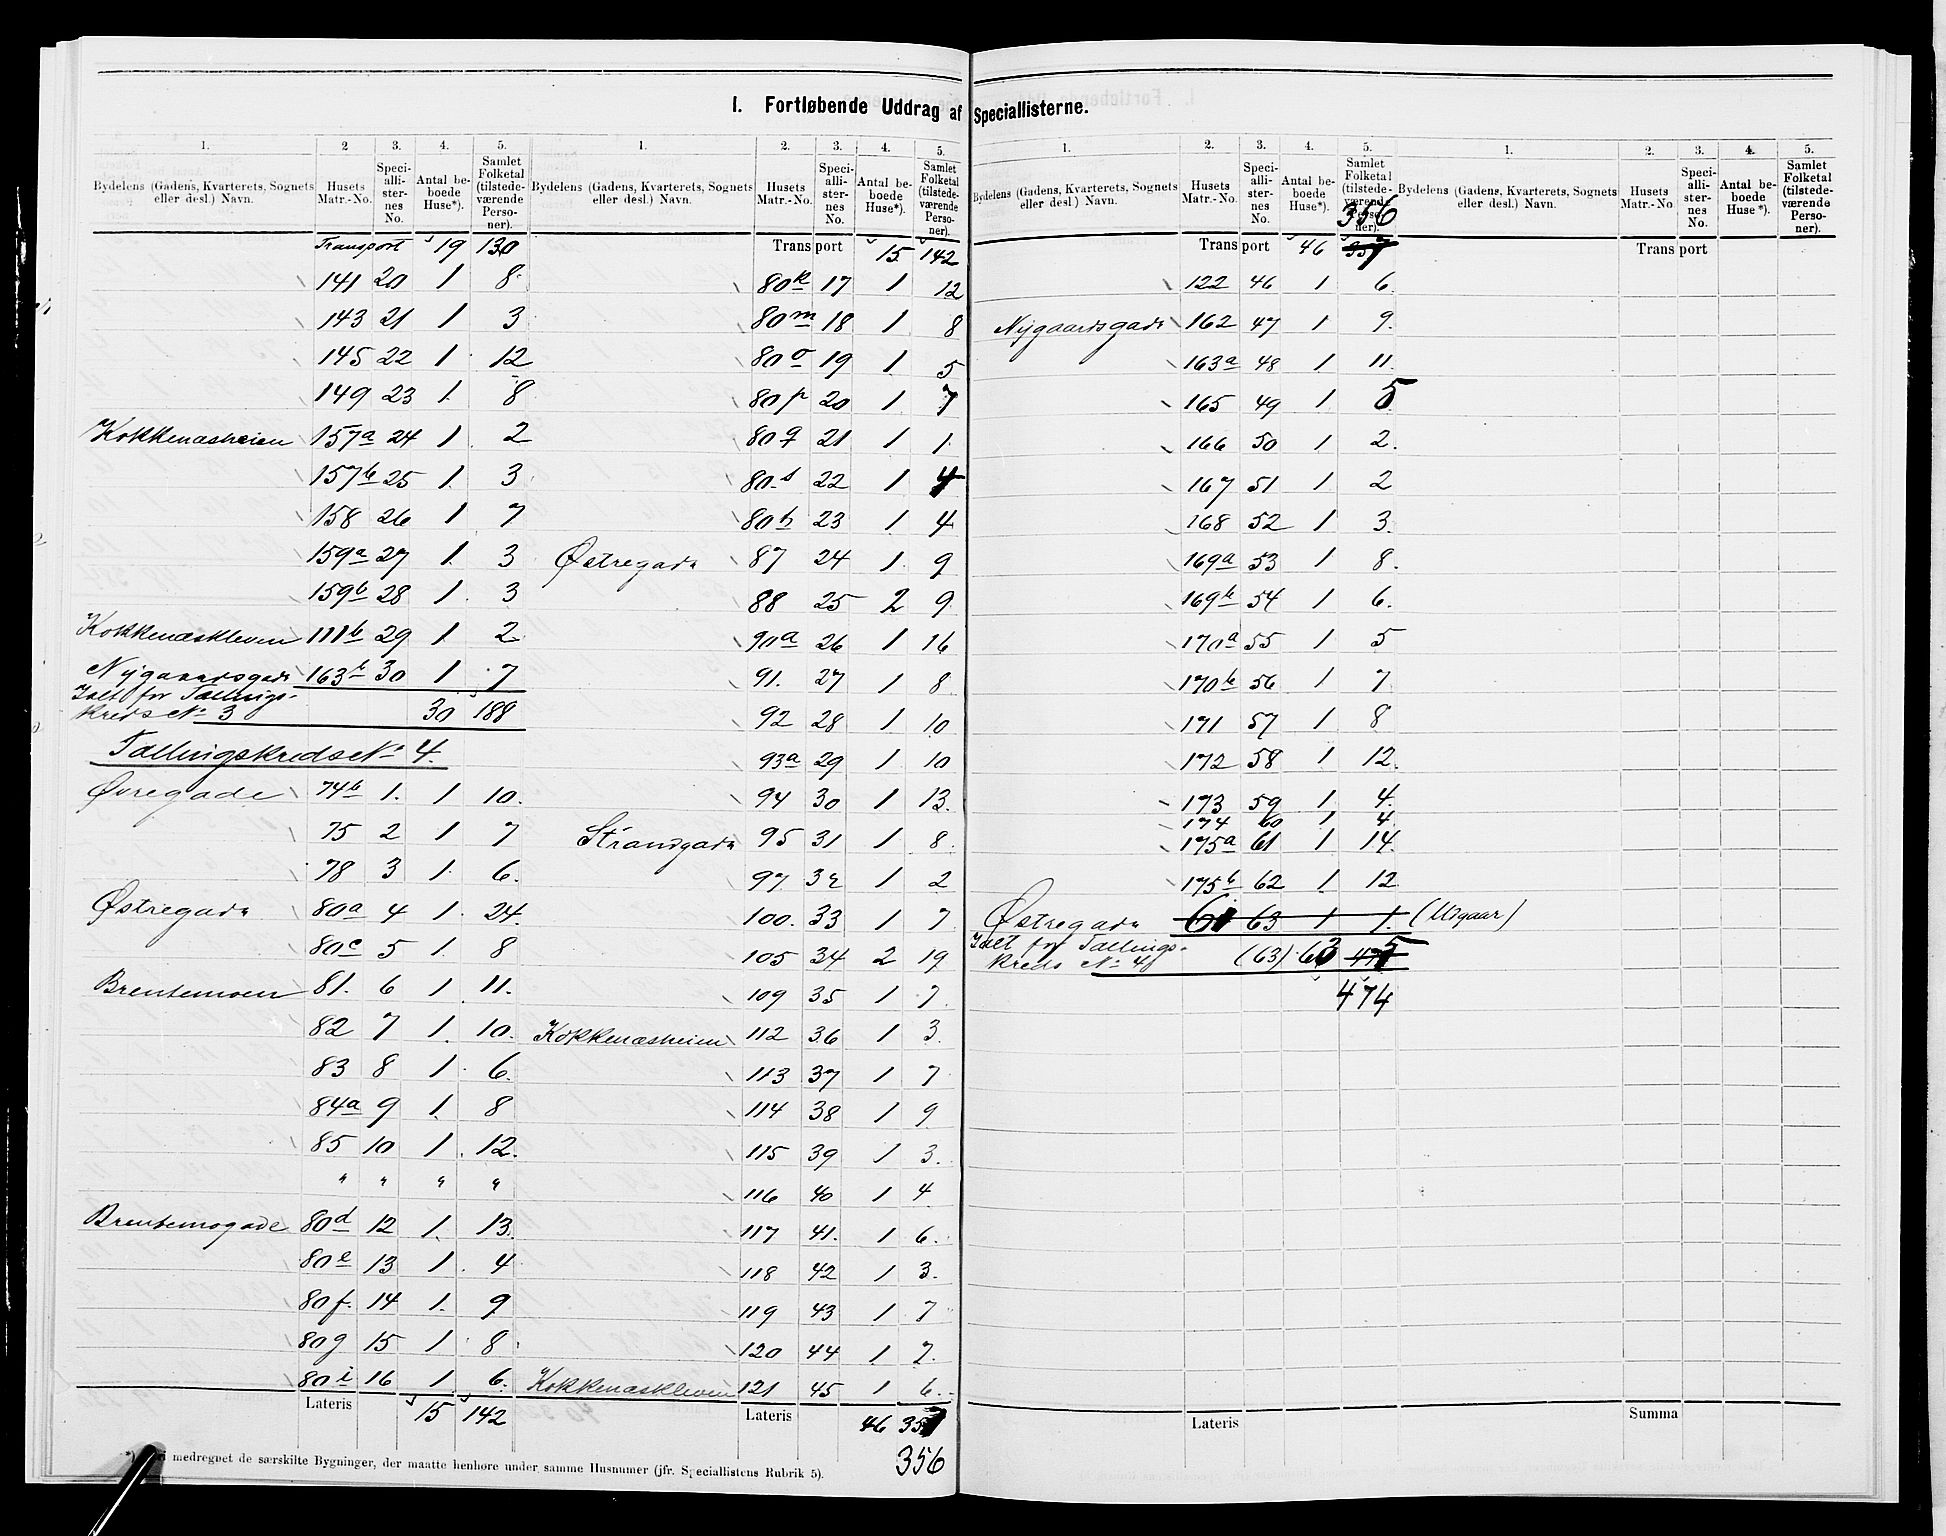 I. Fortløbende Uddrag af Speciallisterne.
1. 2 3. 4. 5.
Bydelens (Gadens, Kvarterets, Sognets eller desl.) Navn. Husets Matr.-No. Specialli-sternes No. Antal beboede Huse*). Samlet Folketal (tilstedeværende Personer).
Transport 19 130
141 20 1 8
143 21 1 3
145 22 1 12
149 23 1 8
Kokkenæsheien 157a 24 1 2
157b 25 1 3
158 26 1 7
159a 27 1 3
159b 28 1 3
Kokkenæskleven 111b 29 1 2
Nygaardsgade 163b 30 1 7
Ialt for Tællings-
kreds No 3 30 188
Tællingskreds No 4.
Øvregade 74b 1. 1 10.
75 2 1 7
78 3 1 6.
Østregade 80a 4 1 24.
80c 5 1 8
Brentemoen 81. 6 1 11.
82 7 1 10.
83 8 1 6.
84a 9 1 8
85 10 1 12.
" " " "
Brentemogade 80d 12 1 13.
80e 13 1 4
80f. 14 1 9
80g 15 1 8
80i 16 1 6.
Lateris 15 142
*) medregnet de særskilte Bygninger, der maatte henhøre under samme Husnumer (jfr. Speciallistens Rubrik 5).
1. 2. 3. 4. 5.
Bydelens (Gadens, Kvarterets, Sognets eller desl.) Navn. Husets Matr.-No. Specialli-sternes No. Antal beboede Huse*). Samlet Folketal (tilstedeværende Personer).
Transport 15 142
80k 17 1 12
80m 18 1 8
80o 19 1 5
80p 20 1 7
80q 21 1 1
80s 22 1 4
80h 23 1 4
Østregade 87 24 1 9
88 25 2 9
90a 26 1 16
91. 27 1 8
92 28 1 10
93a 29 1 10
94 30 1 13.
Strandgade 95 31 1 8.
97 32 1 2
100. 33 1 7
105 34 2 19
109 35 1 7
Kokkenæsheien 112 36 1 3.
113 37 1 7
114 38 1 9
115 39 1 3.
116 40 1 4
117 41. 1 6.
118 42 1 3.
119 43 1 7
120 44 1 7.
Kokkenæskleven 121 45 1 6.
Lateris 46 357
356
1. 2. 3. 4. 5.
Bydelens (Gadens, Kvarterets, Sognets eller desl.) Navn. Husets Matr.-No. Specialli-sternes No. Antal beboede Huse*). Samlet Folketal (tilstedeværende Personer).
356
Transport 46 357
122 46 1 6
Nygaardsgade 162 47 1 9.
163a 48 1 11.
165 49 1 5
166 50 1 2.
167 51 1 2
168 52 1 3.
169a 53 1 8.
169b 54 1 6.
170a 55 1 5
170b 56 1 7
171 57 1 8
172 58 1 12.
173 59 1 4.
174 60 1 4
175a 61 1 14.
175b 62 1 12.
Østregade 61 63 1 1. (Udgaar)
Ialt for Tællings-
kreds No 4 (63) 63 475
474
Lateris
1. 2. 3. 4. 5.
Bydelens (Gadens, Kvarterets, Sognets eller desl.) Navn. Husets Matr.-No. Specialli-sternes No. Antal beboede Huse*). Samlet Folketal (tilstedeværende Personer).
Transport
Summa